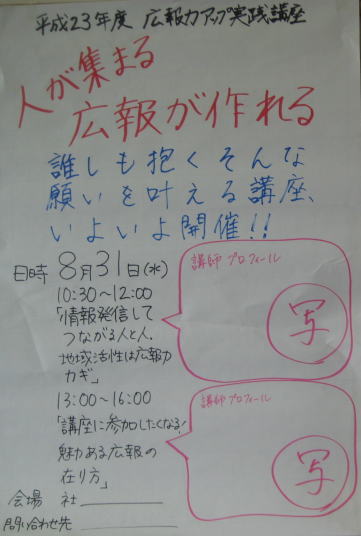 平成23年度 広報力アップ実践講座
人が集まる
広報が作れる
誰しも抱くそんな
願いを叶える講座、
いよいよ開催!!
日時 8月31日(水)
10:30~12:00
「情報発信して
つながる人と人、
地域活性は広報力
カギ」
講師プロフィール
写
13:00~16:00
「講座に参加したくなる!
魅力ある広報の
在り方」
講師プロフィール
写
会場 社
問い合わせ先